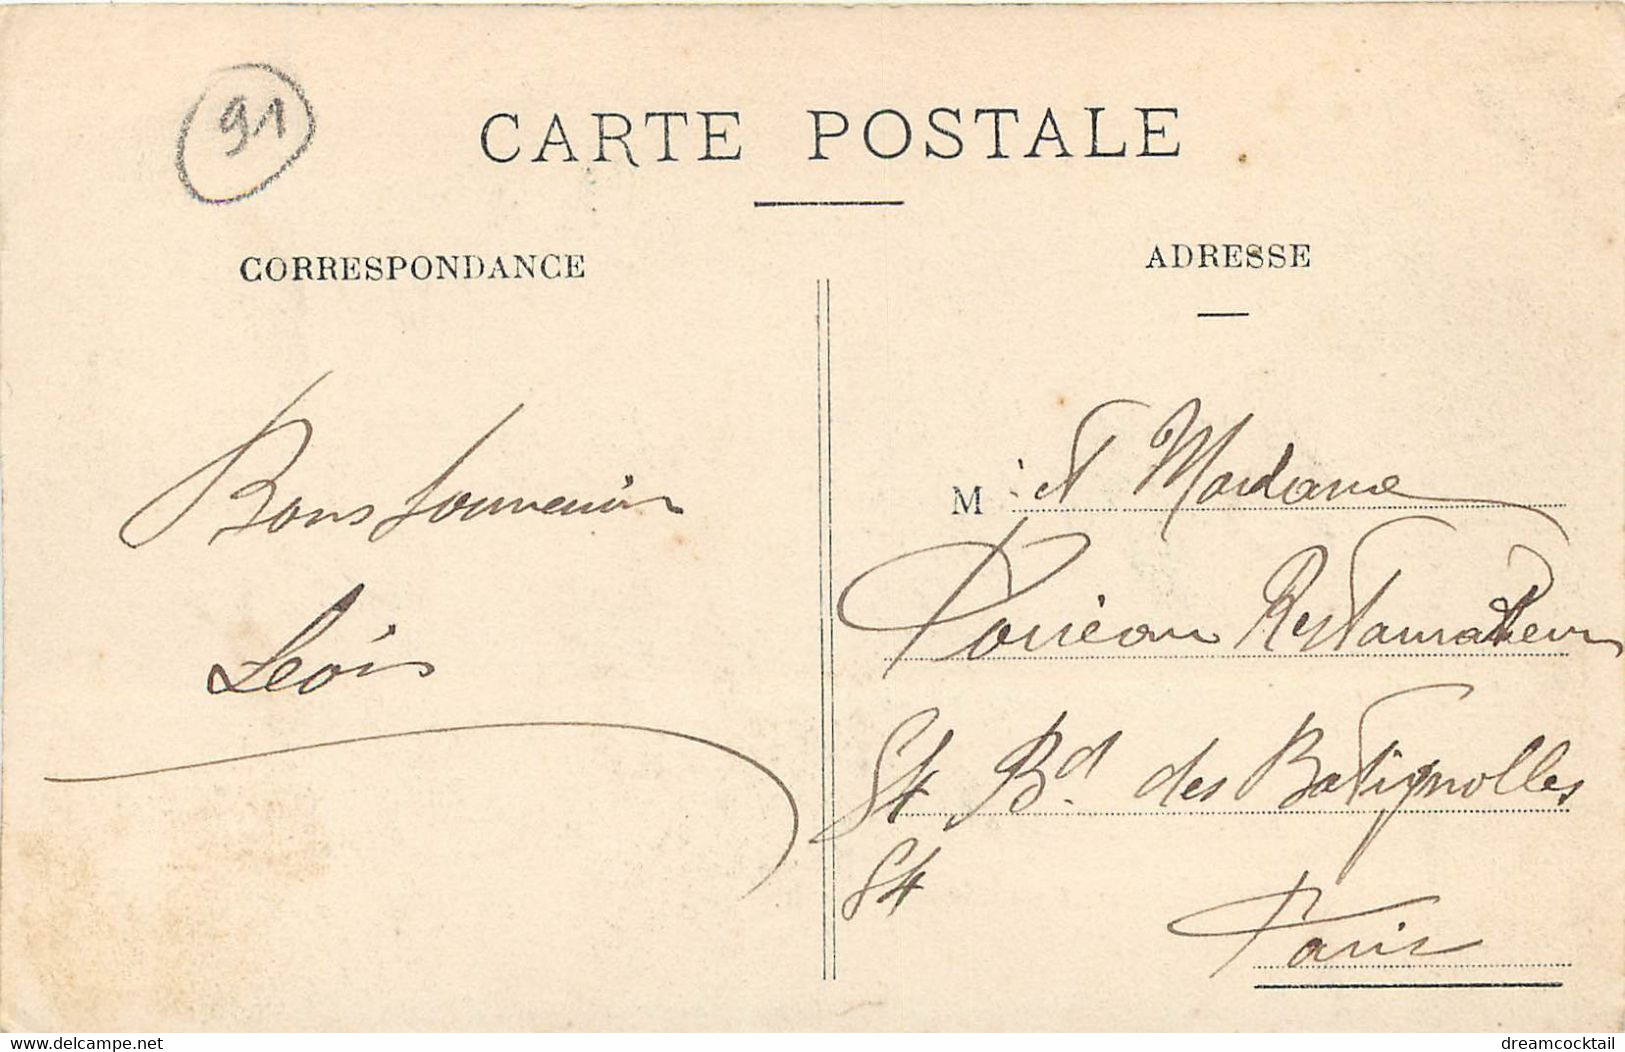 91
CARTE POSTALE
CORRESPONDANCE
ADRESSE
Bons souvenirs
M et Madame
Restaurateur
84 Bd. des Batignolles
84
Paris
www.delcampe.net
dreamcocktail